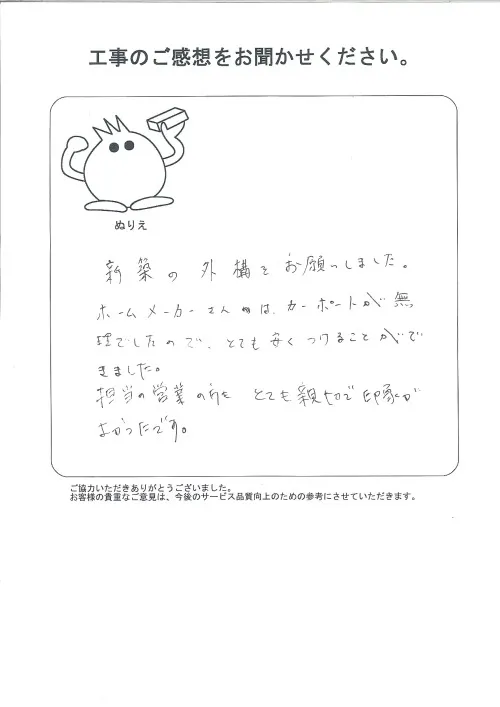 工事のご感想をお聞かせください。
ぬりえ
新築の外構をお願いしました。
ホームメーカーさんでは、カーポートが無
理でしたので、とても安くつけることがで
きました。
担当の営業の方も とても親切で印象が
よかったです。
ご協力いただきありがとうございました。
お客様の貴重なご意見は、今後のサービス品質向上のための参考にさせていただきます。